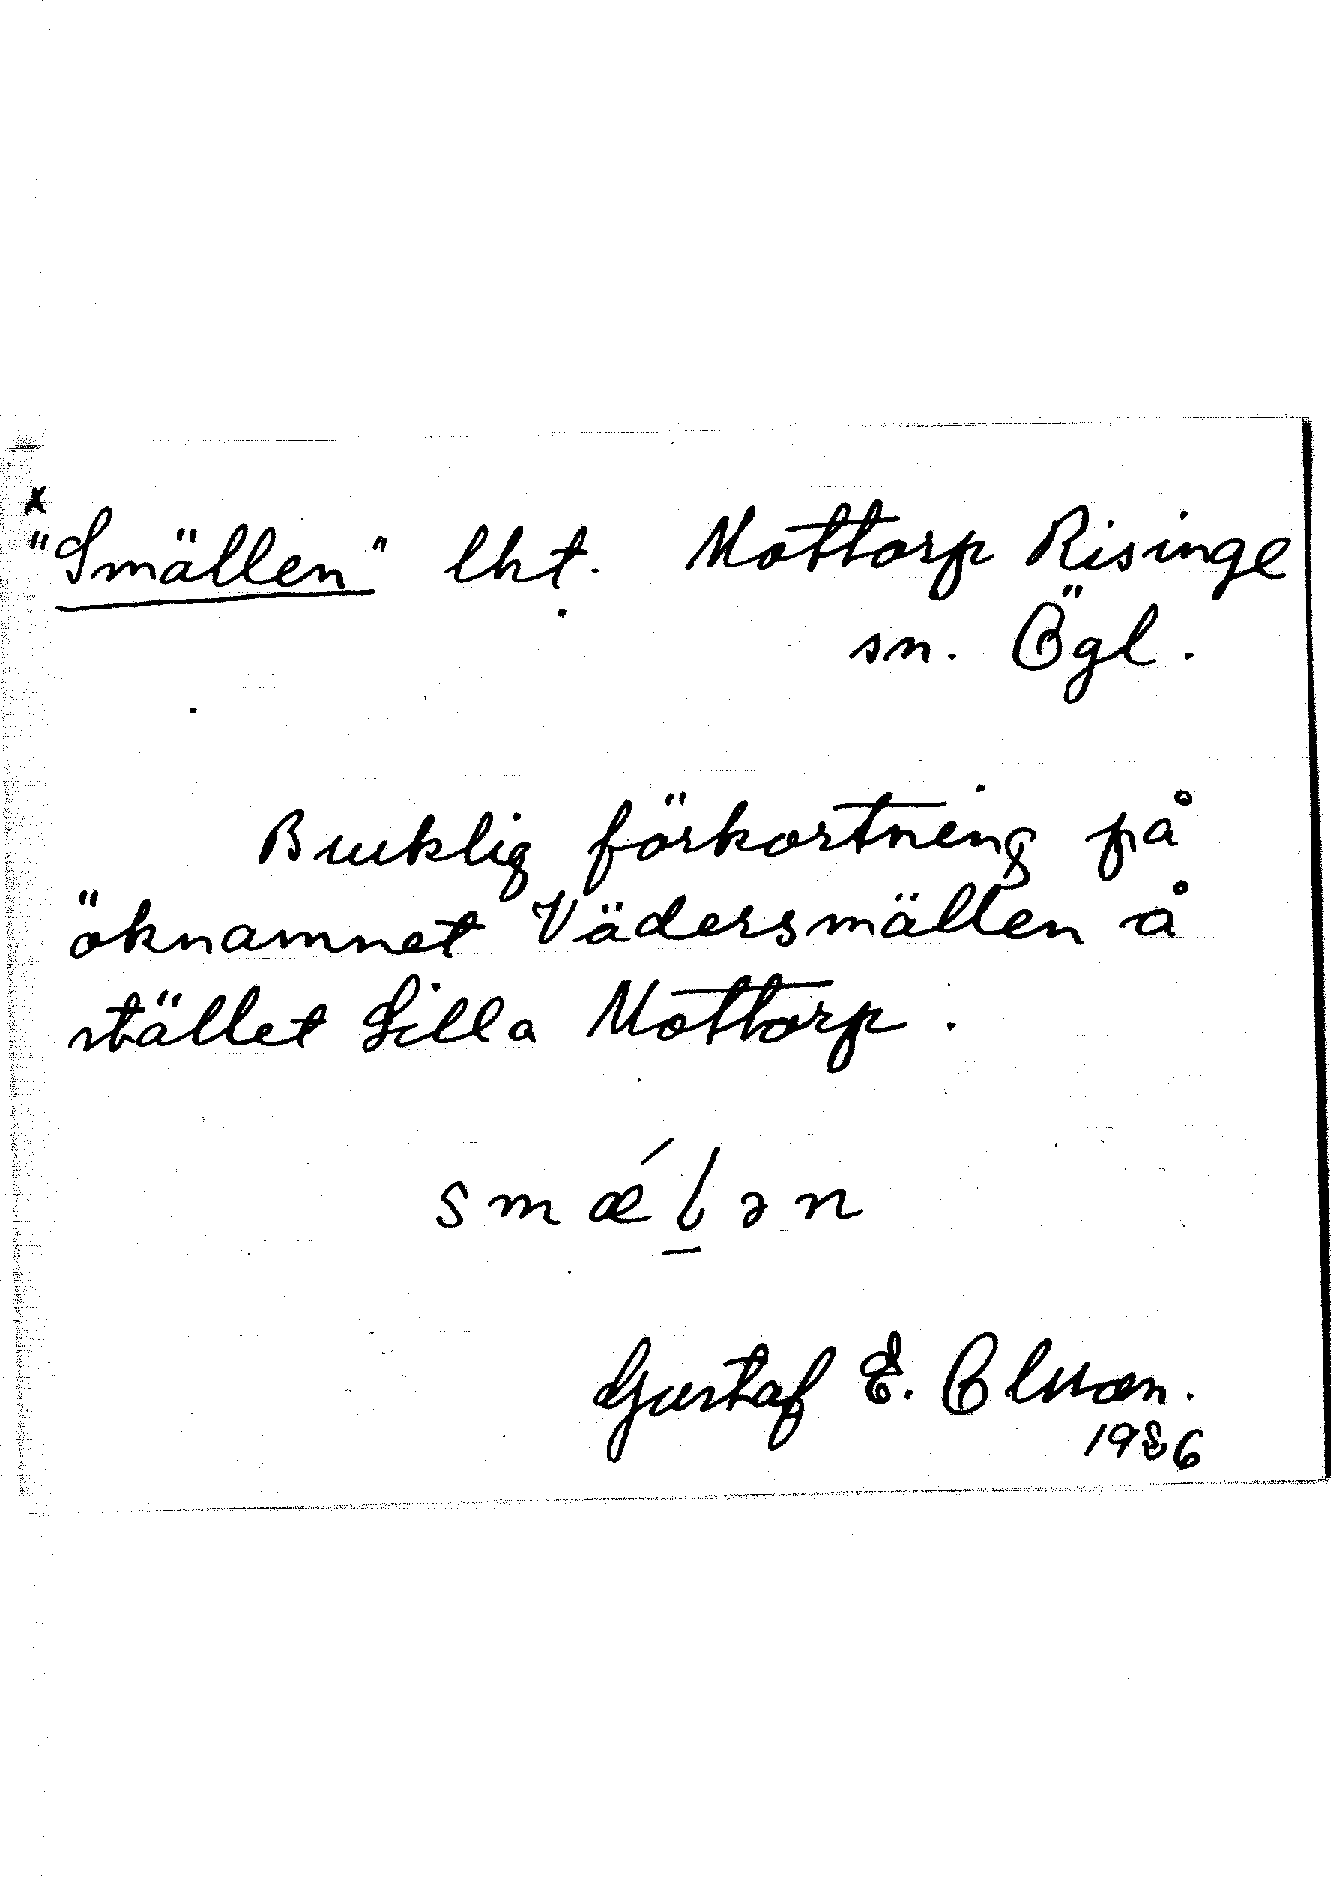 x
"Smällen" lht. Mottorp Risinge
sn. Ögl.
Bruklig förkortning på
öknamnet Vädersmällen å
stället Lilla Mottorp.
smǽlən
Gustaf E. Olsson.
1986